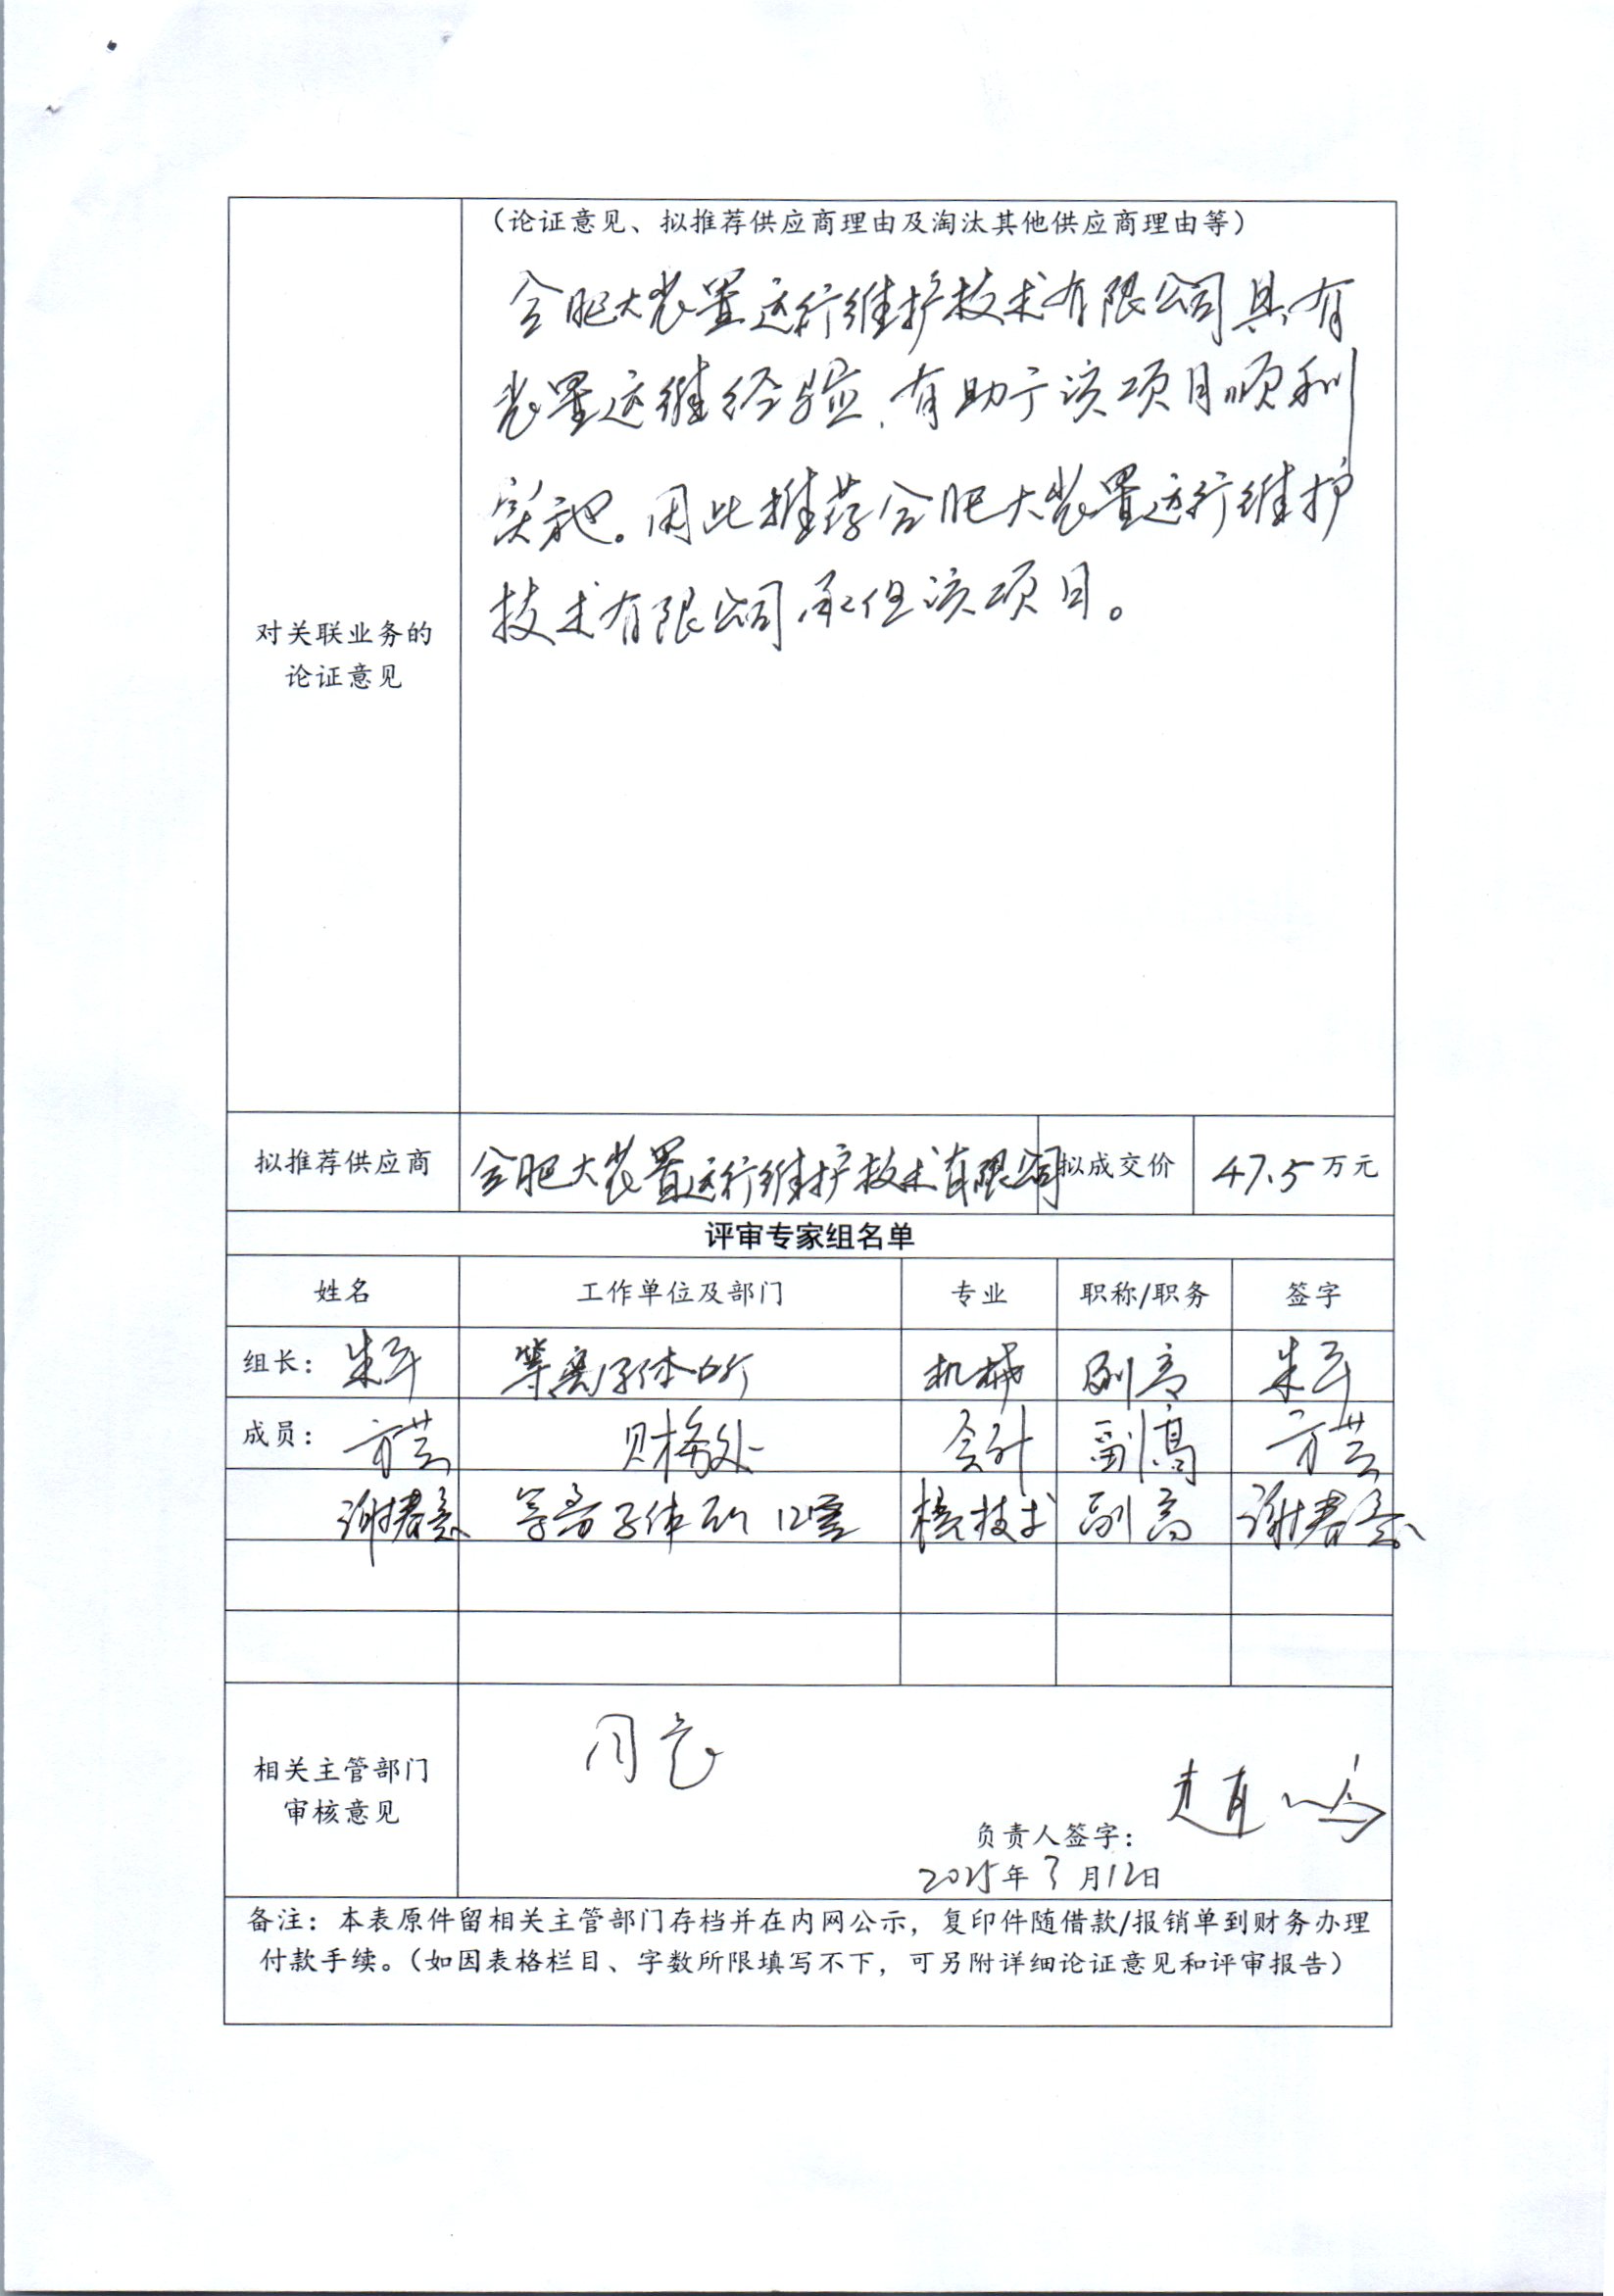 (论证意见、拟推荐供应商理由及淘汰其他供应商理由等)
合肥大装置运行维护技术有限公司具有
装置运维经验,有助于该项目顺利
实施。因此推荐合肥大装置运行维护
技术有限公司承但该项目。
对关联业务的
论证意见
拟推荐供应商 合肥大装置运行维护技术有限公司 拟成交价 47.5万元
评审专家组名单
姓名 工作单位及部门 专业 职称/职务 签字
组长: 朱平 等离子体所 机械 副高 朱平
成员: 方芸 财务处 会计 副高 方芸
谢春意 等离子体所12室 核技术 副高 谢春意
相关主管部门
审核意见
同意
负责人签字:
2025年3月12日
备注: 本表原件留相关主管部门存档并在内网公示,复印件随借款/报销单到财务办理
付款手续。(如因表格栏目、字数所限填写不下,可另附详细论证意见和评审报告)